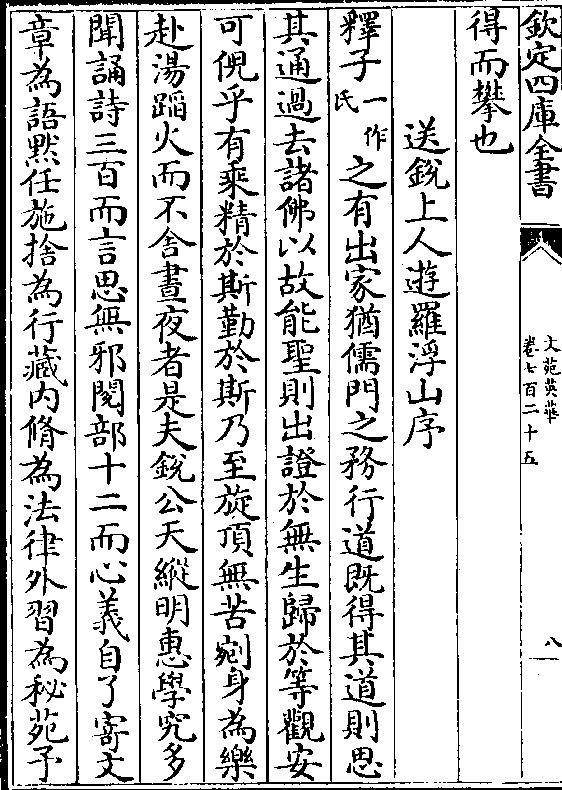 欽定四庫全書
文苑英華
卷七百二十五
八
得而攀也
送銳上人遊羅浮山序
釋子一作氏之有出家猶儒門之務行道既得其道則思
其通過去諸佛以故能聖則出證於無生歸於等觀安
可倪乎有乘精於斯勤於斯乃至旋頂無苦剜身為樂
赴湯蹈火而不舍晝夜者是夫銳公天縱明惠學究多
聞誦詩三百而言思無邪閱部十二而心義自了寄文
章為語默任施捨為行藏内脩為法律外習為秘苑予